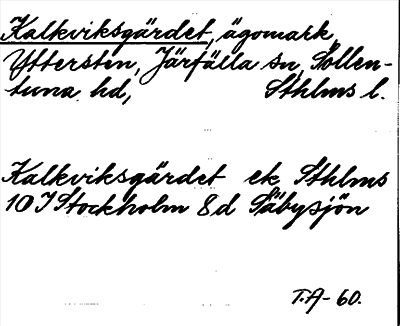 Kalkviksgärdet, ägomark,
Yttersten, Järfälla sn, Sollen-
tuna hd, Sthlms l.
Kalkviksgärdet ek Sthlms
10 I Stockholm 8d Säbysjön
T.A- 60.